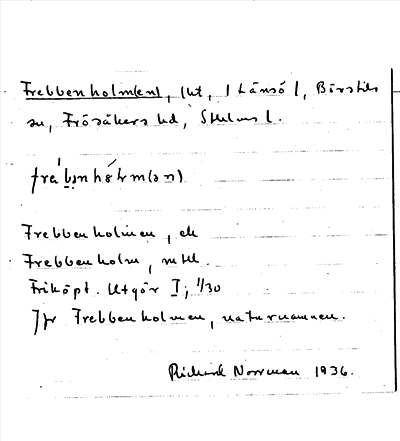 Frebbenholm(en), lht, i Länsö l, Börstils
sn, Frösåkers hd, Sthlms l.
frebbənhòlm(ən)
Frebbenholmen, ek
Frebbenholm, mtl.
Friköpt. Utgör I; 1/30
Jfr Frebbenholmen, naturnamnen.
Richard Norrman 1936.